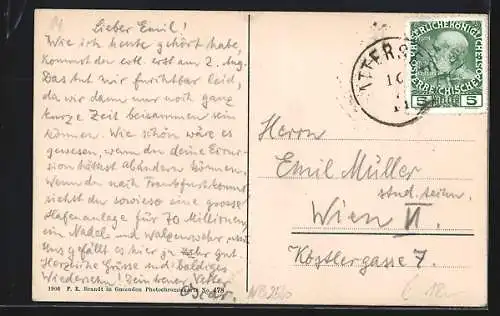 Lieber Emil!
Wie ich heute gehört habe,
kommst du erst am 2. Aug.
Das tut mir furchtbar leid,
da wir dann nur noch ganz
kurze Zeit beisammen sein
können. Wie schön wäre es
gewesen, wenn du deine Excur-
sion hättest abändern können.
Wenn du nach Frankfurt kommst
siehst du sowieso eine grosse
Hafenanlage für 70 Millionen,
ein Nadel- und Walzenwehr
Uns gefällt es hier sehr gut.
Herzliche Grüsse und baldiges
Wiedersehn! Dein treuer Vetter
Oscar.
1908 F. E. Brandt in Gmunden Photochromiekarte No. 478
ATTER
KAISERLICHE KÖNIGLICHE
ÖSTERREICHISCHE
5 HELLER 5
Herrn
Emil Müller
stud. techn.
Wien VI.
Köstlergasse 7.